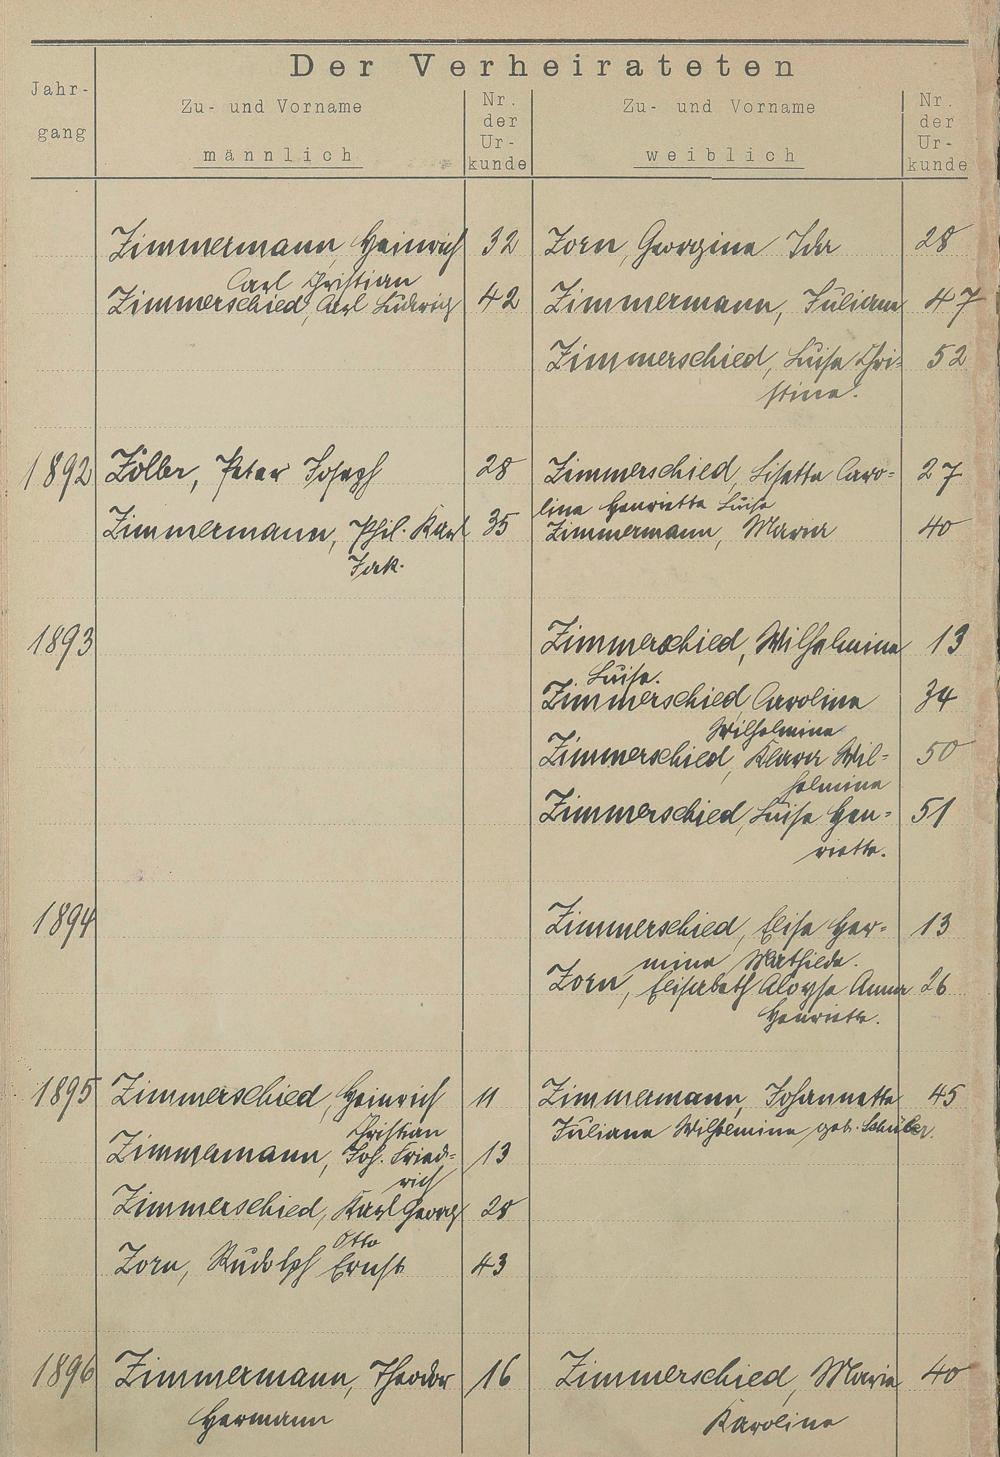 Der Verheirateten
Jahr-
gang
Zu- und Vorname
männlich
Nr.
der
Ur-
kunde
Zu- und Vorname
weiblich
Nr.
der
Ur-
kunde
Zimmermann, Heinrich 32 Zorn, Georgine Ida 28
Carl Christian
Zimmerschied, Carl Ludwig 42 Zimmermann, Juliane 47
Zimmerschied, Luise Chri- 52
stine.
1892 Zöller, Peter Joseph 28 Zimmerschied, Lisette Caro= 27
line Henriette Luise
Zimmermann, Phil. Karl 35 Zimmermann, Maria 40
Jak.
1893 Zimmerschied, Wilhelmine 13
Luise.
Zimmerschied Caroline 34
Wilhelmine
Zimmerschied, Klara Wil= 50
helmine
Zimmerschied, Luise Hen= 51
riette.
1894 Zimmerschied, Elise Her= 13
mine Mathilde.
Zorn, Elisabeth Aloyse Anna 26
Henriette.
1895 Zimmerschied, Heinrich 11 Zimmermann, Johannette 45
Christian Juliane Wilhelmine geb. Schüler.
Zimmermann, Joh. Fried= 13
rich
Zimmerschied, Karl Georg 28
Otto
Zorn, Rudolph Ernst 43
1896 Zimmermann, Theodor 16 Zimmerschied, Marie 40
Hermann Karoline